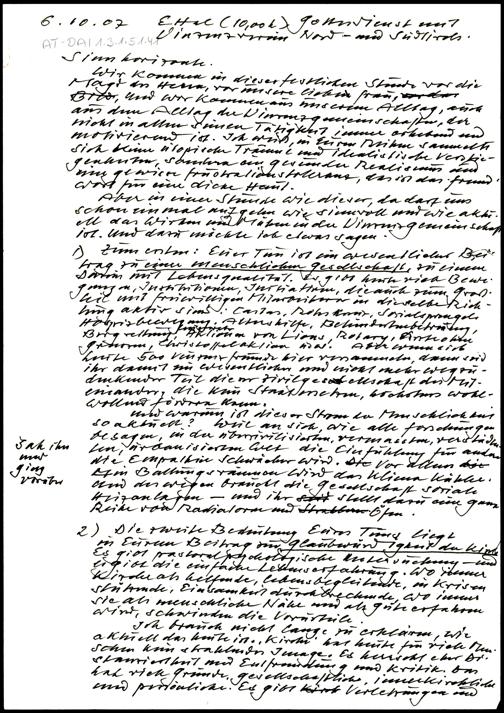 6.10.07 E Hal (10,00h) Gottesdienst mit
Vinzenzverein Nord- und Südtirols.
AT-DA 1.3.1.51.41
Sinnhorizonte.
Wir kommen in dieser festlichen Stunde vor die
Magd des Herrn, vor unsere lieben Frau,
und wir kommen aus unserem Alltag, auch
aus dem Alltag der Vinzenzgemeinschaften, der
nicht in allen seinen Tätigkeit immer erhebend und
motivierend ist. Ich weiß, in Euren Reihen sammelte
sich keine utopische Träume und idealistische Verstie-
genheiten, sondern ein gesunder Realismus und
eine gewisse Frustrationstoleranz, das ist das Fremd-
wort für eine dicke Haut.
Aber in einer Stunde wie dieser, da darf uns
schon einmal aufgehn wie sinnvoll und wie aktu-
ell das Wirken und Mühen in der Vinzenzgemeinschaft
ist. Und dazu möchte ich etwas sagen:
1) Zum ersten: Euer Tun ist ein wesentlicher Bei-
trag zu einer menschlichen Gesellschaft, zu einem
Dasein mit Lebensqualität. Es gibt heute viele Bewe-
gungen, Institutionen, Initiativen, die auch zum Groß-
teil mit freiwilligen Mitarbeitern in dieselbe Rich-
tung aktiv sind: Caritas, Rotes Kreuz, Sozialsprengel
Hospizbewegung, Altershilfe, Behindertenbetreuung,
Bergrettung, Aktionen von Lions, Rotary,
Christoffel aktion usw. Aber wenn sich
heute 500 Vinzenzfreunde hier versammeln, dann seid
ihr damit ein wesentlicher und nicht mehr wegzu-
denkender Teil dieser Zivilgesellschaft des Mit-
einander, die kein Staat ersetzen, höchstens wohl-
wollend fördern kann.
Und warum ist dieser Strom der Menschlichkeit
so aktuell? Weil an sich, wie alle Forschungen
besagen, in der überzivilisierten, vermassten,
ten, urbanisierten Welt die Einfühlung für andere
die Empathie schwieriger wird. Vor allem
in Ballungsräumen wird das Klima kühler.
Und deswegen braucht die Gesellschaft soziale
Heizanlagen – und ihr stellt dazu eine ganze
Reihe von Radiatoren und Öfen.
Sah ihn
und
ging
vorüber
2) Die zweite Bedeutung Eures Tuns liegt
in Eurem Beitrag zur Glaubwürdigkeit der Kirche
Es gibt pastoralpsychologische Untersuchung – und
es gibt die einfache Lebenserfahrung. Wo immer
Kirche als helfende, lebensbegleitende, in Krisen
stützende, Einsamkeit durchbrechende, wo immer
sie als menschliche Nähe und als Güte erfahren
wird, schwinden die Vorurteile.
Ich brauch nicht lange zu erklären, wie
aktuell das heute ist. Kirche hat heute für viele Men-
schen kein strahlendes Image. Es herrscht eher Di-
stanziertheit und Entfremdung und Kritik. Das
hat viele Gründe, gesellschaftliche, innerkirchliche
und persönliche. Es gibt Verletzungen und